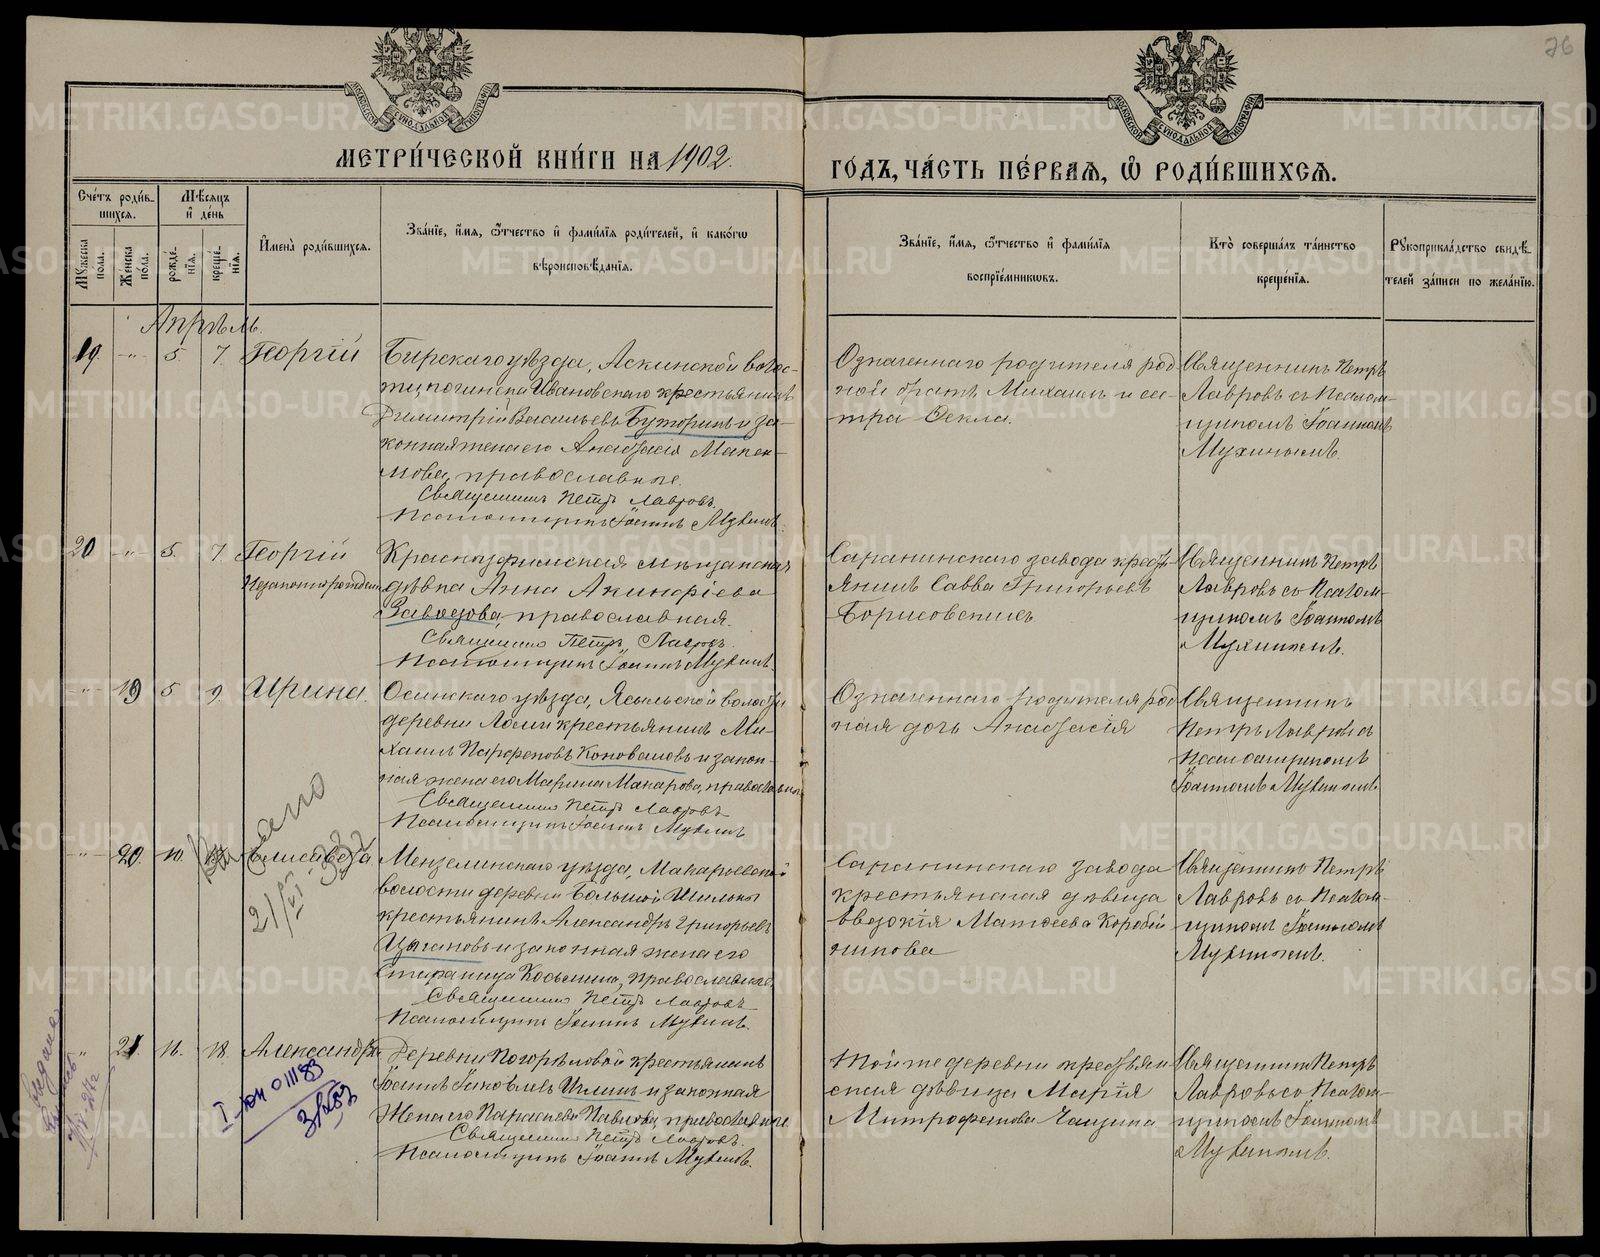 МЕТРИ́ЧЕСКОЙ КНИ́ГИ НА 1902.
ГО́ДЪ, ЧА́СТЬ ПЕ́РВАѦ, Ѡ҆ РОДИ́ВШИХСѦ.
26
Сче́тъ роди́в-
шихсѧ.
Мѣ́сѧцъ
и҆ де́нь
Мꙋ́жеска
по́ла.
Же́нска
по́ла.
рожде́-
нїѧ.
креще́-
нїѧ.
И҆мена̀ роди́вшихсѧ.
Зва́нїе, и҆́мѧ, ѻ҆́тчество и҆ фами́лїѧ роди́телей, и҆ како́гѡ
вѣроисповѣ́данїѧ.
Зва́нїе, и҆́мѧ, ѻ҆́тчество и҆ фами́лїѧ
воспрїе́мникѡвъ.
Кто̀ соверша́лъ та́инство
креще́нїѧ.
Рꙋкоприкла́дство свидѣ́-
телей за́писи по жела́нїю.
Апрѣль.
19. -"- 5. 7. Георгій
Бирскаго уѣзда, Аскинской волос-
ти, починка Ивановскаго крестьянинъ
Димитрій Васильевъ Буторинъ и за-
конная жена его Анастасія Макси-
мова, православные.
Священникъ Петръ Лавровъ.
Псаломщикъ Іоаннъ Мухинъ.
Означеннаго родителя род
ной братъ Михаилъ и сес-
тра Фекла.
Священникъ Петръ
Лавровъ съ Псалом-
щикомъ Іоанномъ
Мухинымъ.
20 -"- 5. 7. Георгій
Незаконнорожден.
Красноуфимская мѣщанская
дѣвка Анна
Заводова, православная.
Священникъ Петръ Лавровъ.
Псаломщикъ Іоаннъ Мухинъ.
Саранинскаго завода кресть
янинъ Савва Григорьевъ
Борисовскихъ
Священникъ Петръ
Лавровъ съ Псалом-
щикомъ Іоанномъ
Мухинымъ.
-"- 19 5 9 Ирина.
Осинскаго уѣзда, волости
деревни крестьянинъ Ми-
хаилъ Парфеновъ Коноваловъ и закон-
ная жена его Марина Макарова, православные
Священникъ Петръ Лавровъ
Псаломщикъ Іоаннъ Мухинъ
Означеннаго родителя род
ная дочь Анастасія
Священникъ
Петръ Лавровъ съ
Псаломщикомъ
Іоанномъ Мухинымъ.
-"- 20. 10. Елисавета
21/VI-
Мензелинскаго уѣзда, Макарьевской
волости деревни Большой Шильны
крестьянинъ Александръ Григорьевъ
Цыгановъ и законная жена его
Степанида Косьмина, православные
Священникъ Петръ Лавровъ
Псаломщикъ Іоаннъ Мухинъ.
Саранинскаго завода
крестьянская дѣвица
Евдокія Матѳеева Коробей
никова
Священникъ Петръ
Лавровъ съ Псалом-
щикомъ Іоанномъ
Мухинымъ.
" 21 11. 18. Александра
I-
Деревни крестьянинъ
Іоаннъ Яковлевъ и законная
жена его Параскева Павлова, православные
Священникъ Петръ Лавровъ.
Псаломщикъ Іоаннъ Мухинъ.
Той же деревни крестьян
ская дѣвица Марія
Митрофанова
Священникъ Петръ
Лавровъ съ Псалом-
щикомъ Іоанномъ
Мухинымъ.
METRIKI.GASO-URAL.RU